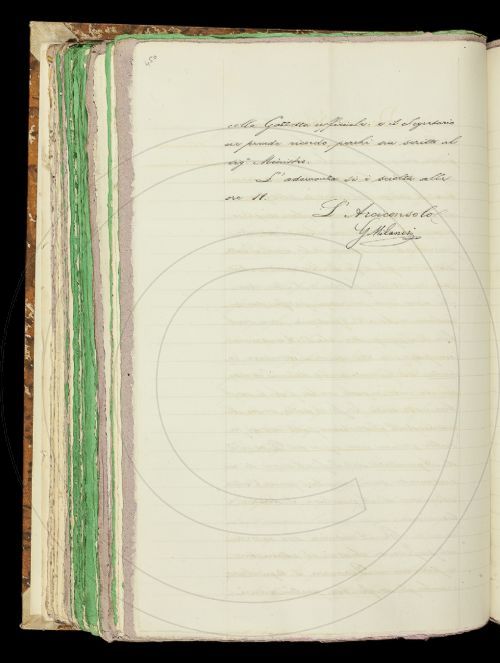 450
nella Gazzetta ufficiale. e il Segretario
ne prende ricordo perchè sia scritto al
sigr Ministro.
L'adunanza si è sciolta alle
ore 11.
L'Arciconsolo
G Milanesi